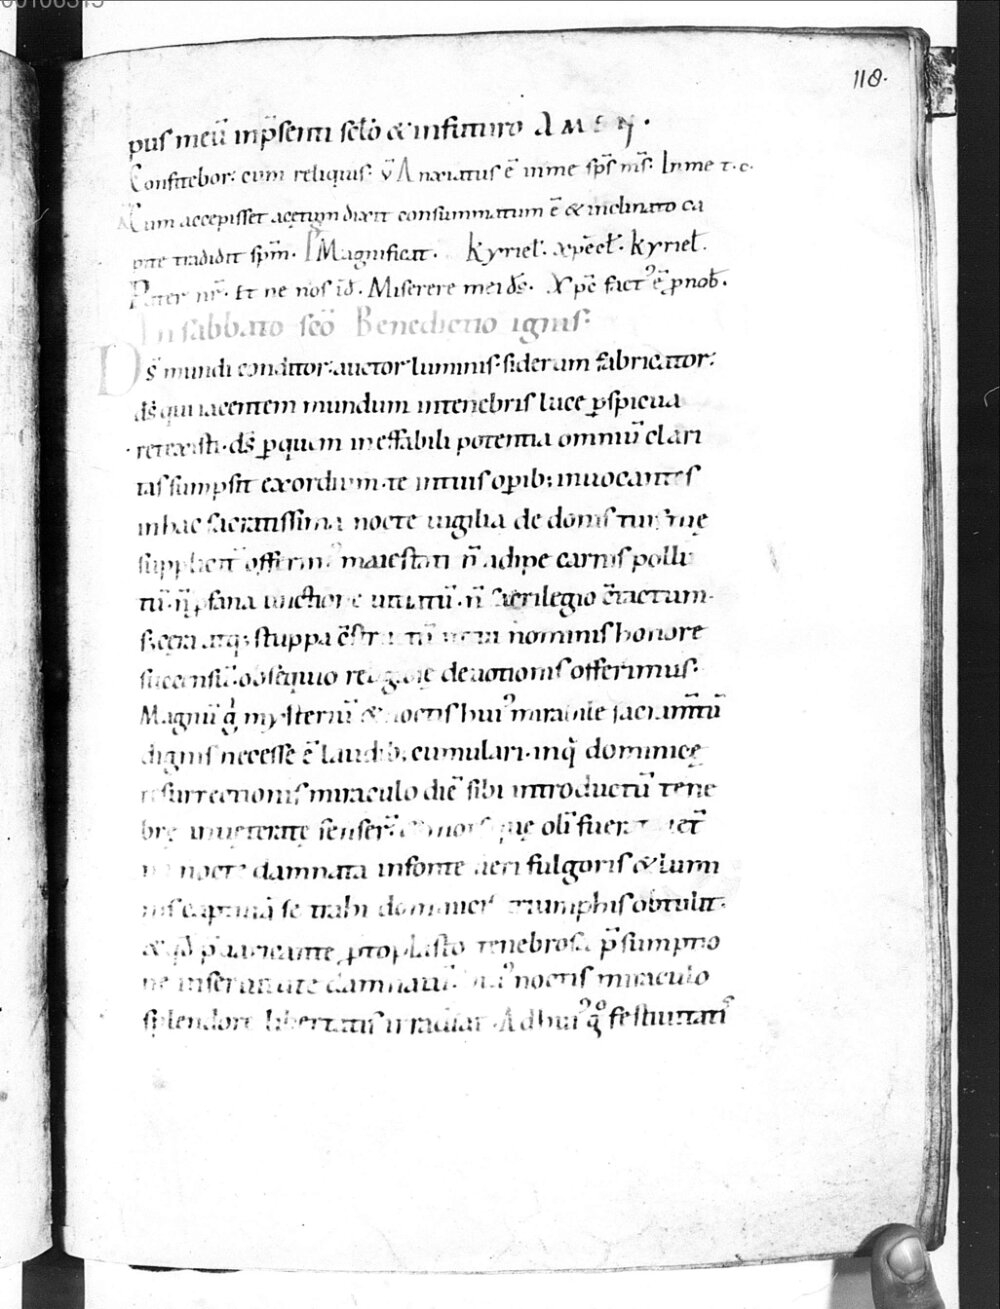 118.
pus meū in p̄senti sc̄lo & in futuro AMEN.
Confitebor: cum reliquis. v̄ Anxiatus ē in me sp̄s m̄s. In me t. c.
Cum accepisset acetum dixit consummatum ē & inclinato ca
pite tradidit sp̄m. P̄ Magnificat. Kyriel̄. xp̄eel̄. Kyriel̄.
Pater nr̄. Et ne nos id̄. Miserere mei ds̄. Xp̄c fact' ē ꝓ nob̄.
In sabbato sc̄o Benedictio ignis:
Ds̄ mundi conditor: auctor luminis. siderum fabricator:
ds̄ qui iacentem mundum in tenebris luce ꝑspicua
retexisti. ds̄ ꝑ quem ineffabili potentia omniū clari
tas sumpsit exordium. te in tuis oꝑib; inuocantes
in hac sacratissima nocte uigilia de donis tuis tuę
supplicit̄ offerim' maiestati n̄ adipe carnis pollu
tū. n̄ ꝓfana unctione uitiatū. n̄ sacrilegio c̄tactum.
s; cera atq; stuppa c̄structū nominis honore
succensū. obsequio religionę deuotionis offerimus.
Magnū g̊ mysteriū & noctis hui' mirabile sacram̄tū
dignis necesse ē laudib; cumulari. in q̄ dominicę
resurrectionis miraculo diē sibi introductū tene
brę inueteratę senser̄ & mors quę olī fuerat
nocte damnata insonte ueri fulgoris & lumi
nis captiuā se trahi dominicis triumphis obtulit.
& qd̄ p̄uaricante ꝓtoplasto tenebrosa p̄sumptio
ne in seruitute damnatū. hui' noctis miraculo
splendore libertatis irradiat. Ad hui' g̊ festiuitatis